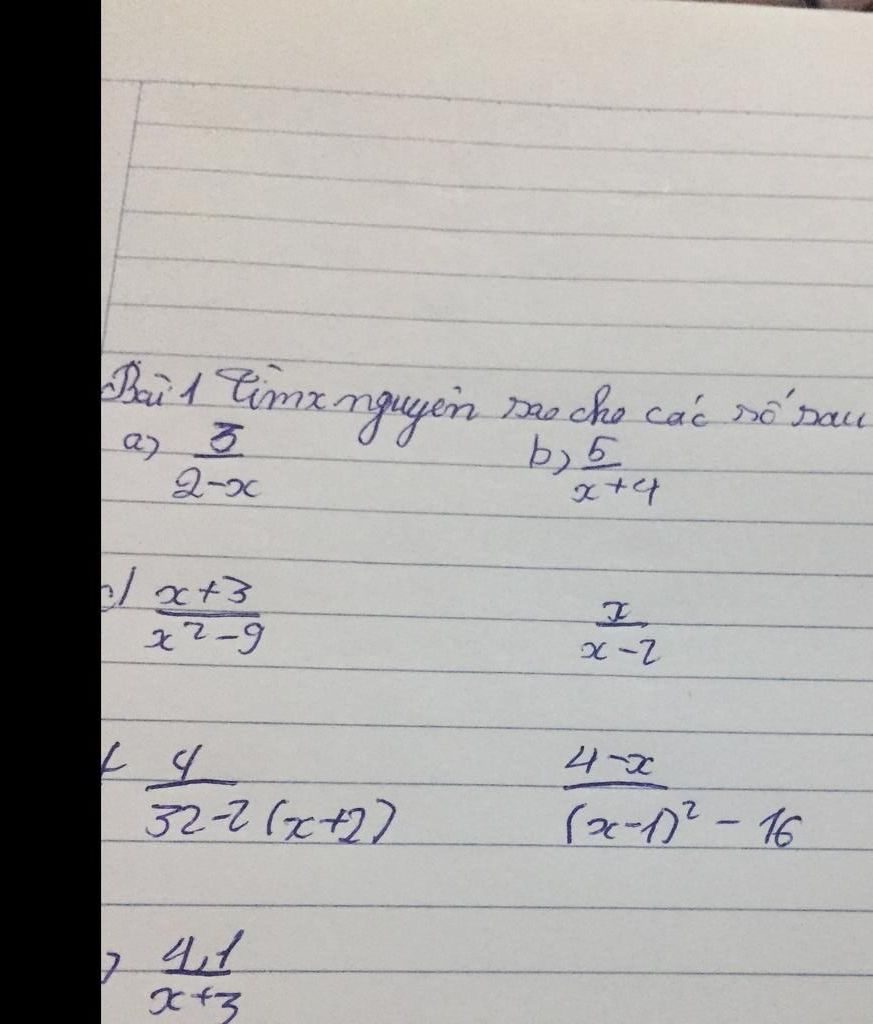 Bài 1 Tìm x nguyên sao cho các số sau
a) 3/(2-x) b) 5/(x+4)
c) (x+3)/(x²-9) x/(x-2)
4/(32-2(x+2)) (4-x)/((x-1)²-16)
) 4,1/(x+3)